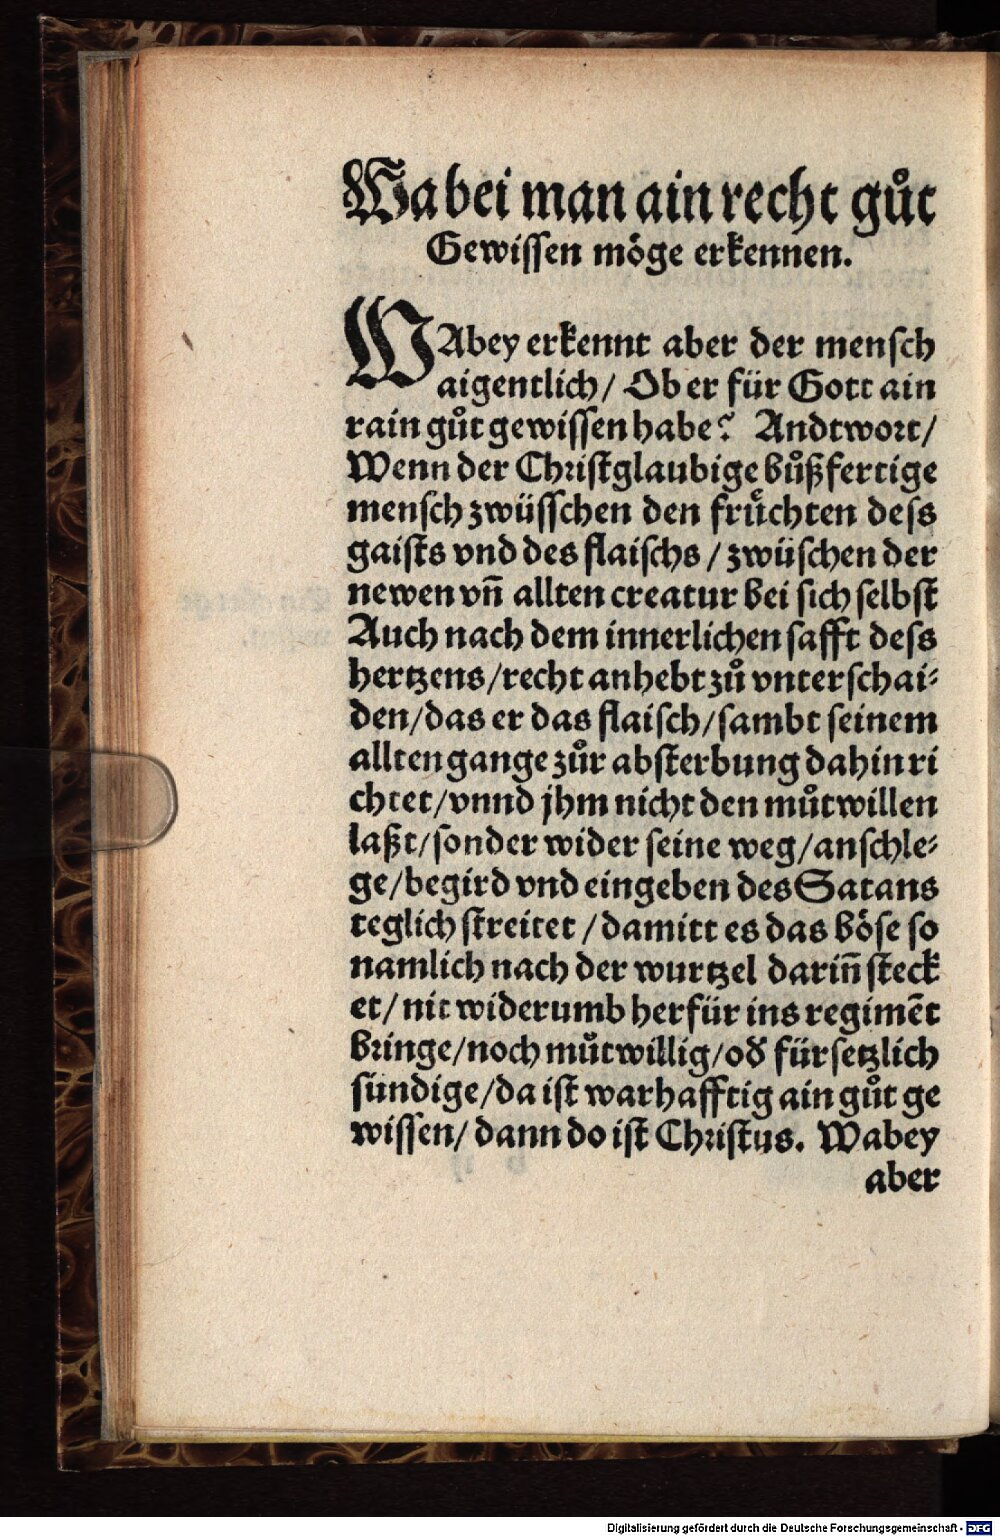 Wa bei man ain recht gůt
Gewissen möge erkennen.
WAbey erkennt aber der mensch
aigentlich / Ob er für Gott ain
rain gůt gewissen habe? Andtwort /
Wenn der Christglaubige bůßfertige
mensch zwüsschen den frůͤchten dess
gaists vnd des flaischs / zwüschen der
newen vn̄ allten creatur bei sich selbst
Auch nach dem innerlichen safft dess
hertzens / recht anhebt zů vnterschai⸗
den / das er das flaisch / sambt seinem
allten gange zůr absterbung dahin ri
chtet / vnnd jhm nicht den můtwillen
laßt / sonder wider seine weg / anschle⸗
ge / begird vnd eingeben des Satans
teglich streitet / damitt es das böse so
namlich nach der wurtzel darin̄ steck
et / nit widerumb herfür ins regimēt
bringe / noch můtwillig / od̕ fürsetzlich
sündige / da ist warhafftig ain gůt ge
wissen / dann do ist Christus. Wabey
aber
Digitalisierung gefördert durch die Deutsche Forschungsgemeinschaft - DFG